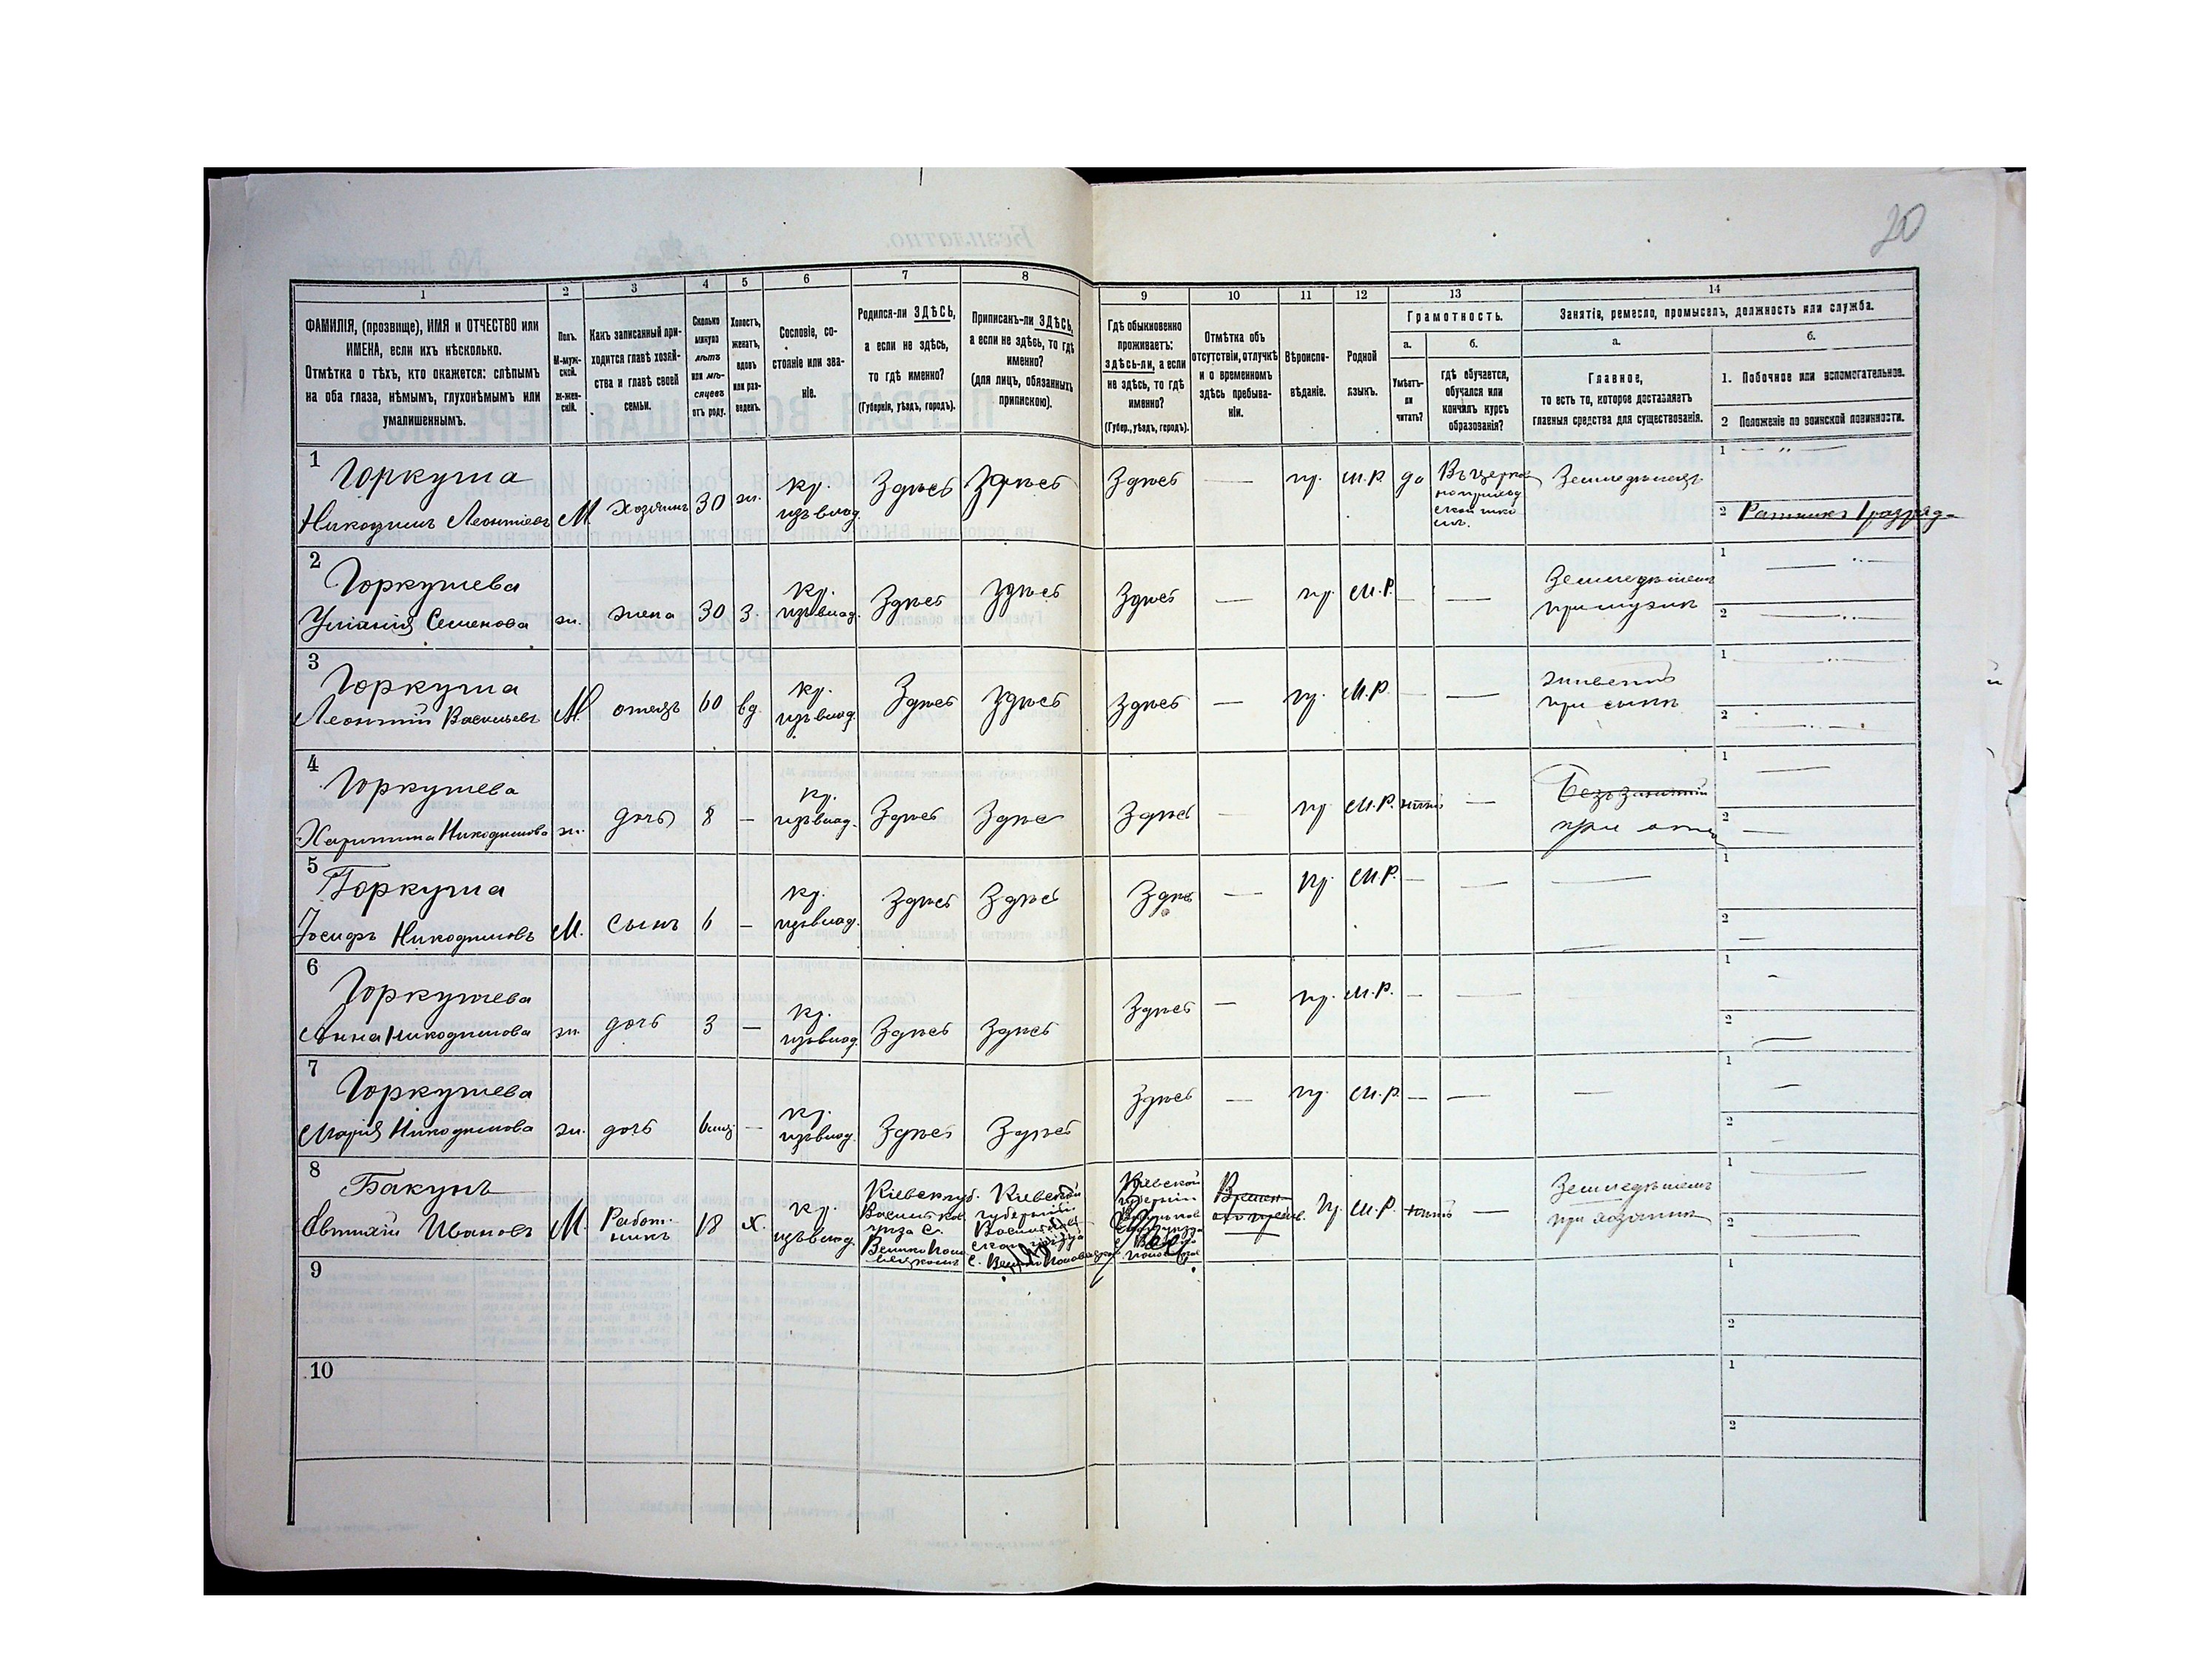 20
1 2 3 4 5 6 7 8 9 10 11 12 13 14
ФАМИЛІЯ, (прозвище), ИМЯ и ОТЧЕСТВО или
ИМЕНА, если ихъ нѣсколько.
Отмѣтка о тѣхъ, кто окажется: слѣпымъ
на оба глаза, нѣмымъ, глухонѣмымъ или
умалишеннымъ.
Полъ.
М-муж-
ской.
Ж-жен-
скій.
Какъ записанный при-
ходится главѣ хозяй-
ства и главѣ своей
семьи.
Сколько
минуло
лѣтъ
или мѣ-
сяцевъ
отъ роду.
Холостъ,
женатъ,
вдовъ
или раз-
веденъ.
Сословіе, со-
стояніе или зва-
ніе.
Родился-ли ЗДѢСЬ,
а если не здѣсь,
то гдѣ именно?
(Губернія, уѣздъ, городъ).
Приписанъ-ли ЗДѢСЬ,
а если не здѣсь, то гдѣ
именно?
(для лицъ, обязанныхъ
припискою).
Гдѣ обыкновенно
проживаетъ:
здѣсь-ли, а если
не здѣсь, то гдѣ
именно?
(Губер., уѣздъ, городъ).
Отмѣтка объ
отсутствіи, отлучкѣ
и о временномъ
здѣсь пребыва-
ніи.
Вѣроиспо-
вѣданіе.
Родной
языкъ.
Грамотность.
а.
Умѣетъ-
ли
читать?
б.
гдѣ обучается,
обучался или
кончилъ курсъ
образованія?
Занятіе, ремесло, промыселъ, должность или служба.
а.
Главное,
то есть то, которое доставляетъ
главныя средства для существованія.
б.
1. Побочное или вспомогательное.
2 Положеніе по воинской повинности.
1
Горкуша
Никодимъ Леонтіевъ М. хозяинъ 30 ж. кр.
изъ влад. Здѣсь Здѣсь Здѣсь — пр. М.Р. да Въ церко
вно приход
ской шко
лѣ. Земледѣлецъ
1 — " —
2 Ратникъ 1 разряда
2
Горкушева
Уліанія Семенова ж. жена 30 з. кр.
изъ влад. Здѣсь Здѣсь Здѣсь — пр. М.Р. — — Земледѣліемъ
при мужѣ
1 —
2 —
3
Горкуша
Леонтій Васильевъ М. отецъ 60 вд. кр.
изъ влад. Здѣсь Здѣсь Здѣсь — пр. М.Р. — — живетъ
при сынѣ
1 —
2 —
4
Горкушева
Харитина Никодимова ж. дочь 8 — кр.
изъ влад. Здѣсь Здѣсь Здѣсь — пр. М.Р. нѣтъ — Безъ занятій
при отцѣ
1 —
2 —
5
Горкуша
Іосифъ Никодимовъ М. сынъ 6 — кр.
изъ влад. Здѣсь Здѣсь Здѣсь — пр. М.Р. — — —
1
2 —
6
Горкушева
Анна Никодимова ж. дочь 3 — кр.
изъ влад. Здѣсь Здѣсь Здѣсь — пр. М.Р. — —
1 —
2 —
7
Горкушева
Марія Никодимова ж. дочь 6 мц. — кр.
изъ влад. Здѣсь Здѣсь Здѣсь — пр. М.Р. — — —
1 —
2 —
8
Бакунъ
Евтихій Ивановъ М. Работ-
никъ 18 х. кр.
изъ влад.
Кіевск. губ.
Васильков.
уѣзда с.
Кіевской
губерніи
Васильков
скаго уѣзда
Кіевской
губерніи
пр. М.Р. нѣтъ — Земледѣліемъ
при хозяинѣ
1 —
2 —
9
1
2
10
1
2